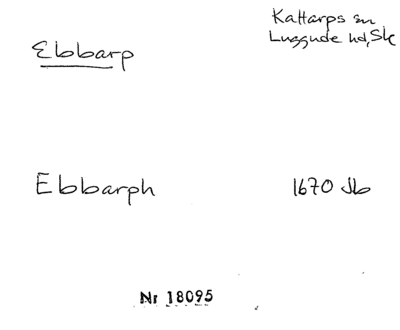 Ebbarp
Kattarps sn
Luggude hd, Sk
Ebbarph
1670 Jb
Nr 18095